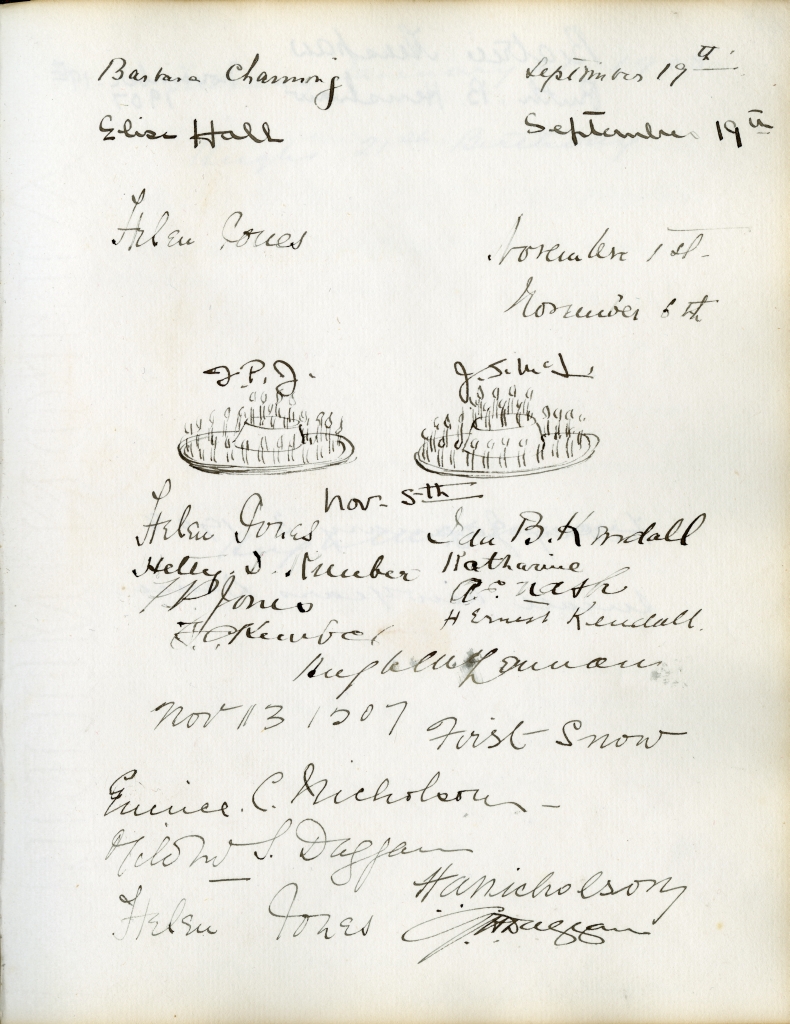 Barbara Channing September 19th
Elise Hall September 19th
Helen Jones November 1st-
November 6th
F.P.J. J.S.McL
Nov- 5th
Helen Jones B. Kendall
D. Kember Katharine
F P Jones A.E. Nash
Kember H Ernest Kendall.
Hugh McLennan
Nov 13 1907 First Snow
Eunice. C. Nicholson -
Mildred S. Duggan
H.A. Nicholson
Helen Jones G H Duggan